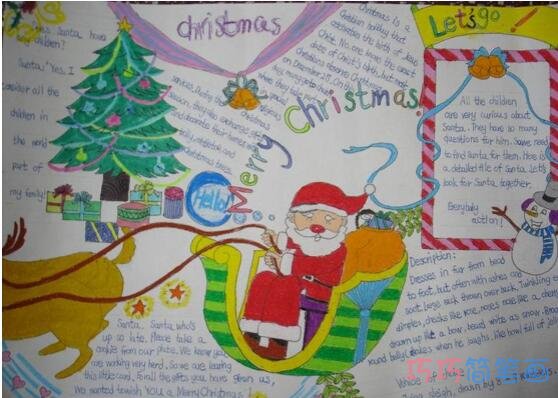 christmas
Let's go!!
this Santa have
any children?
Santa,"Yes, I
consider all the
children in
the world
part of
my family!
Christmas is a
christian holiday that
celebrates the birth of Jesus
Christ. No one knows the exact
date of Christ's birth, but most
christians observe Christmas
on December 25. On this day,
many people go to
services. During the Christmas
season, they also exchange gifts
and decorate their homes with
holly, mistletoe and
christmas trees.
Merry Christmas!
Hello!
All the children
are very curious about
Santa. They have so many
questions for him. Some need
to find Santa for them. Here is
a detailed file of Santa. Let's
look for Santa together.
Everybody
action!
Description:
Dresses in fur from head
to foot, but often with ashes and
soot, large sack thrown over back. Twinkling
dimples, cheeks like rose, noses nose like a cherry
drawn up like a bow, beard white as snow. Broad
round belly when he laughs, like bowl full of jelly
Vehicle of
sleigh, drawn by 8 reindeers.
Santa, Santa, who's
up so late. Please take a
cookie from our plate. We know you
are working very hard. So we are leaving
this little card, for all the gifts you have given us,
We wanted to wish you a Merry Christmas!
巧巧简笔画